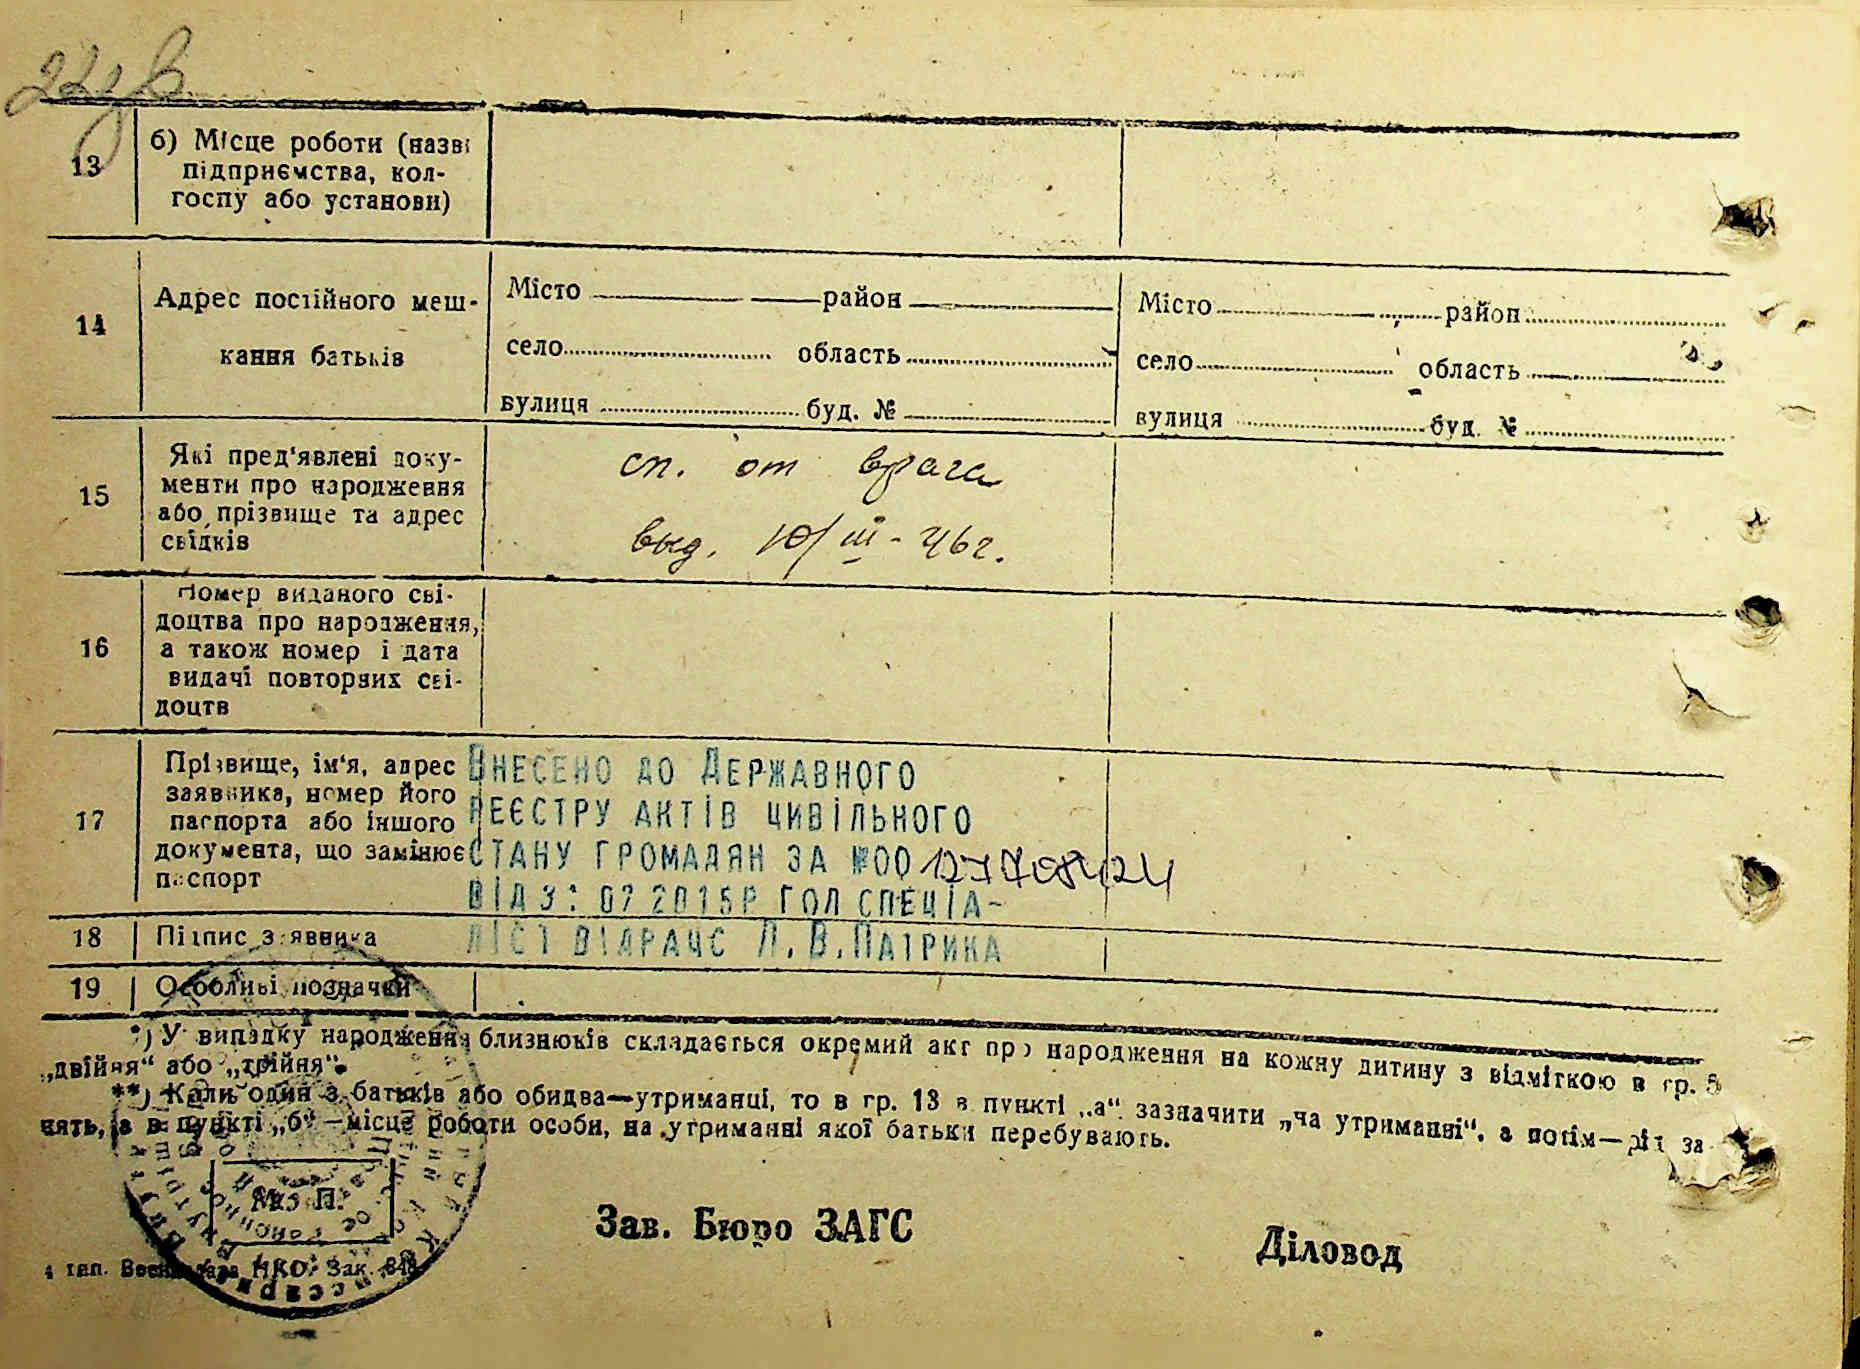 13
б) Місце роботи (назві
підприємства, кол-
госпу або установи)
14
Адрес постійного меш-
кання батьків
Місто район
село область
вулиця буд. №
Місто район
село область
вулиця буд. №
15
Які пред'явлені доку-
менти про народження
або прізвище та адрес
свідків
сп. от врача
выд. 10/III-46г.
16
Номер виданого сві-
доцтва про народження,
а також номер і дата
видачі повторних сві-
доцтв
17
Прізвище, ім'я, адрес
заявника, номер його
паспорта або іншого
документа, що замінює
паспорт
Внесено до Державного
реєстру актів цивільного
стану громадян за №00
від 07 2015р гол спеціа-
ліст відрацс Л.В.Патрика
18
Підпис заявника
19
Особливі позначки
*) У випадку народження близнюків складається окремий акт про народження на кожну дитину з відміткою в гр. 5
„двійня“ або „трійня“.
**) Коли один з батьків або обидва—утриманці, то в гр. 13 в пункті „а“ зазначити „на утриманні“, а потім—рід за-
нять, а в пункті „б“—місце роботи особи, на утриманні якої батьки перебувають.
М. П.
Зав. Бюро ЗАГС
Діловод
4 тип. Воениздата НКО. Зак. 848